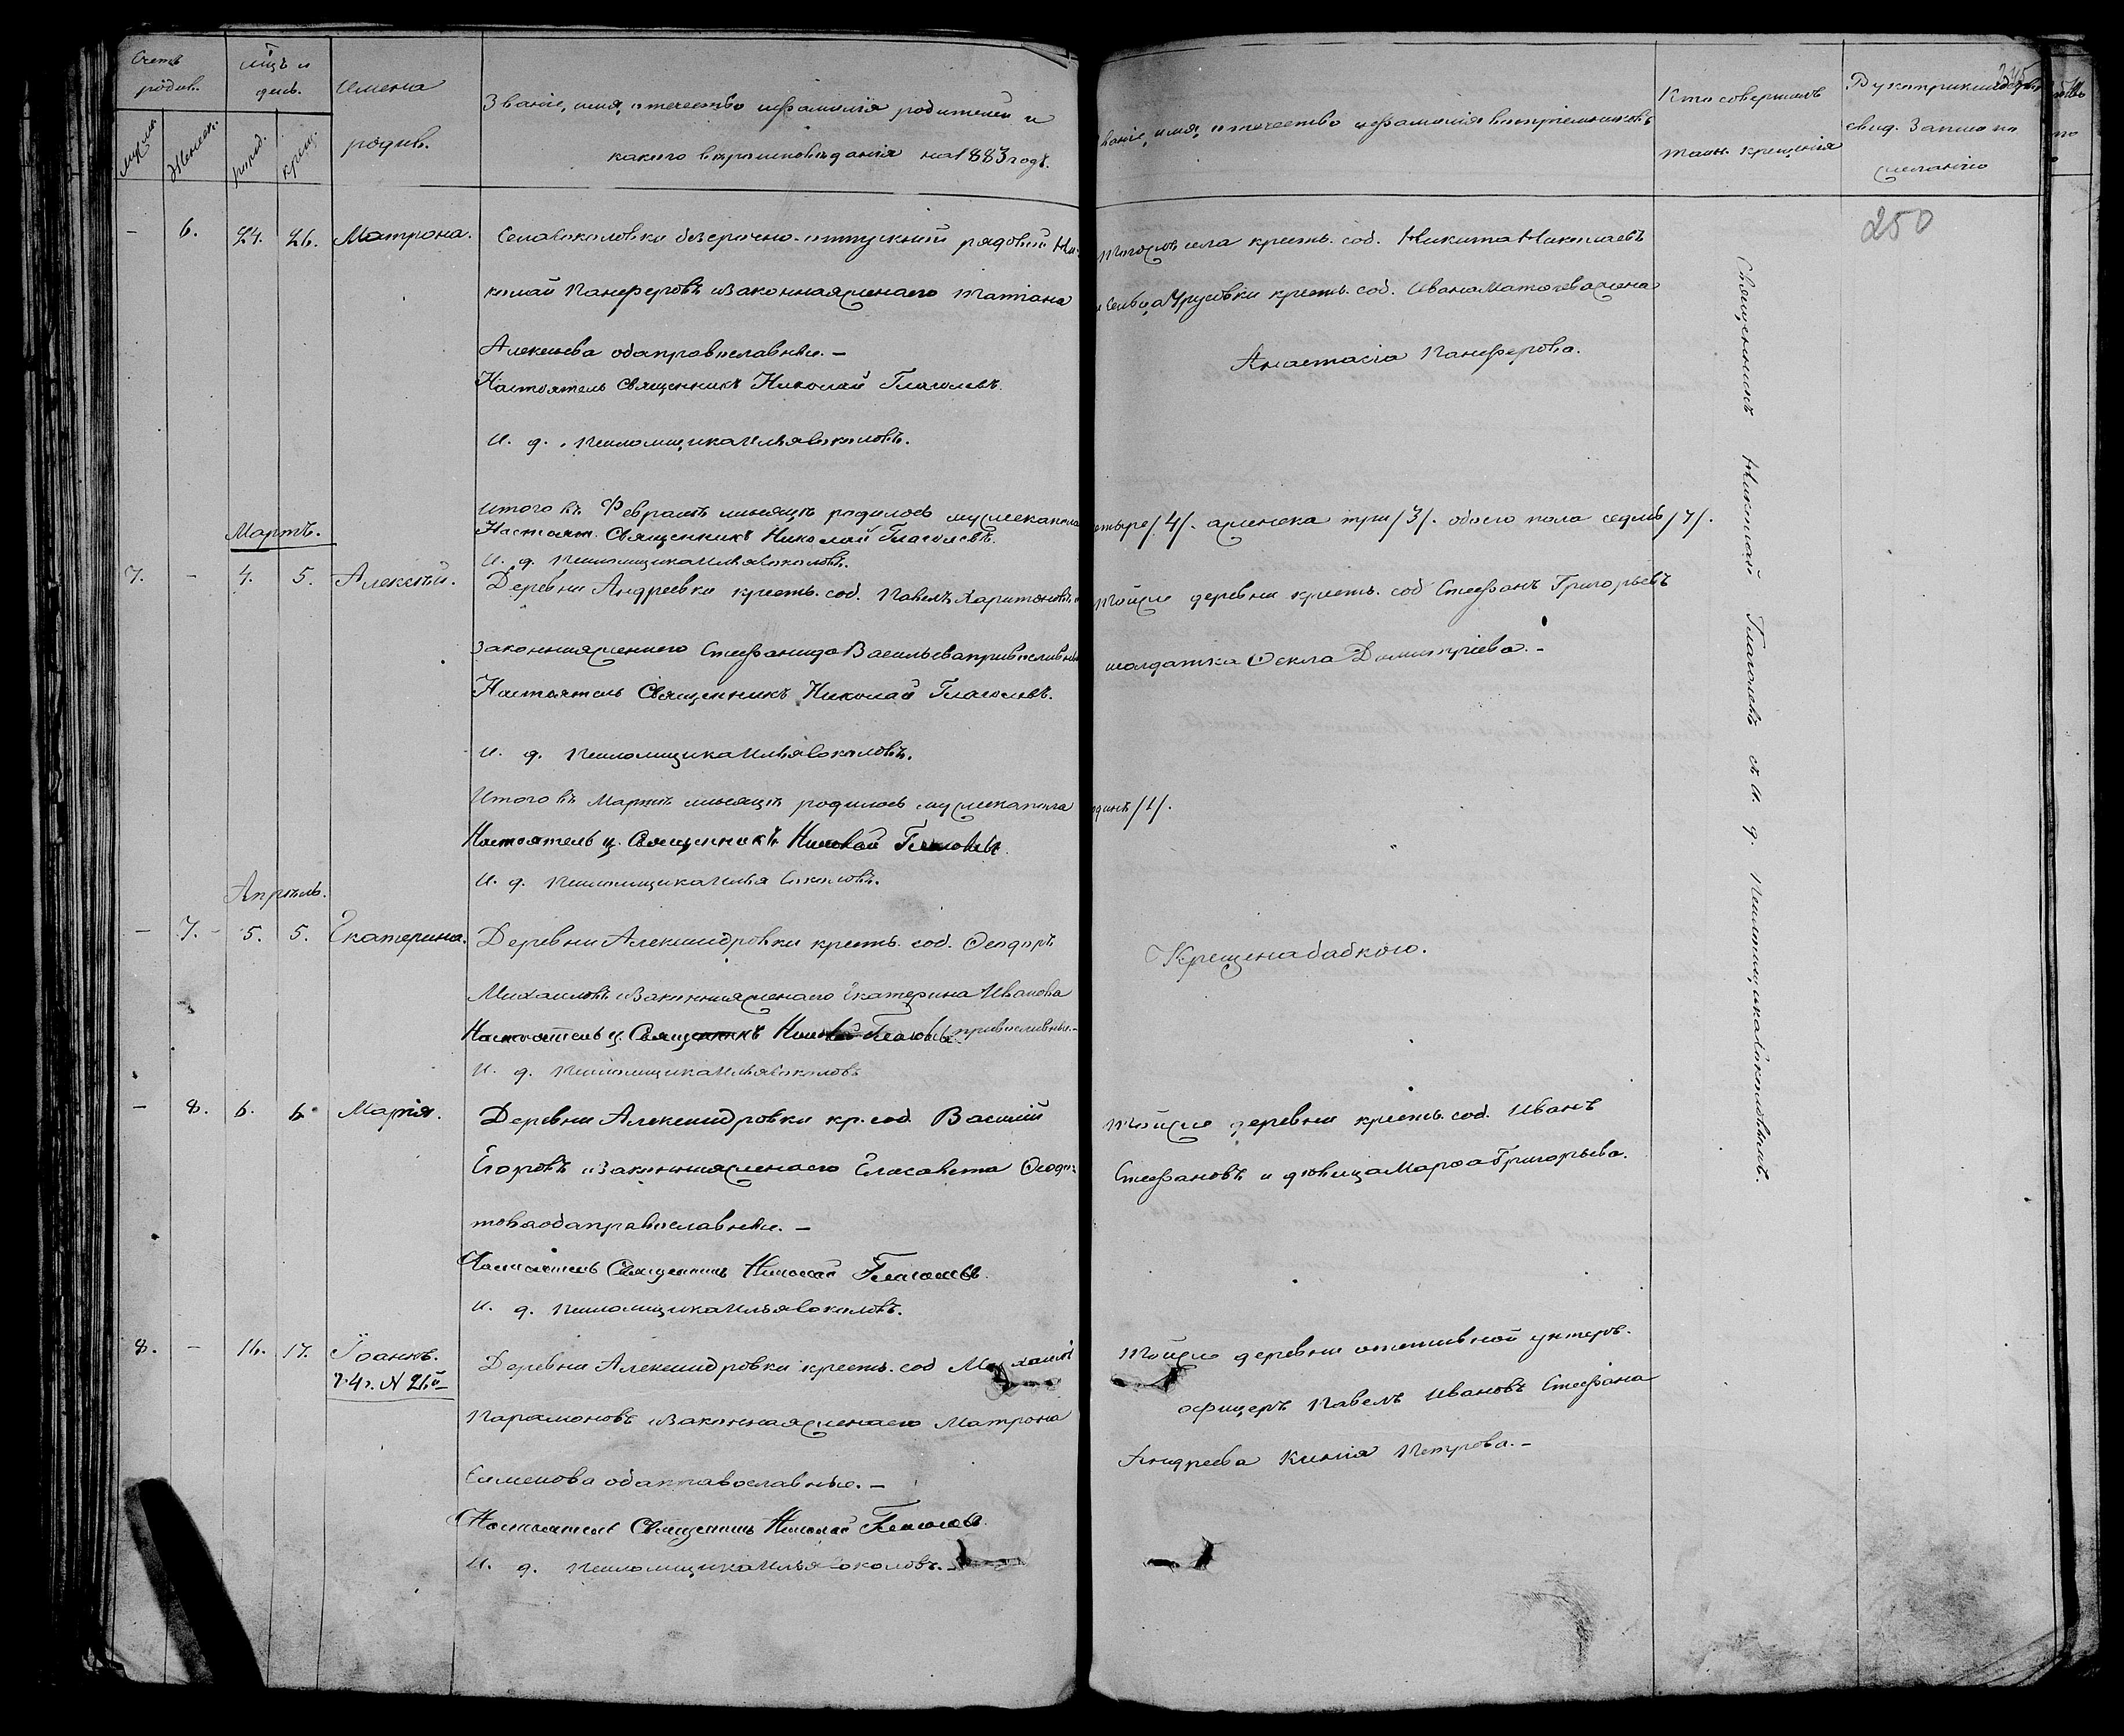 Счетъ родив.
Мѣц. и день.
Имена родив.
Званіе, имя, отечество и фамилія родителей и
какого вѣроисповѣданія на 1883 годъ.
Званіе, имя, отечество и фамилія воспріемниковъ
Кто совершалъ
таин. крещенія
свид. записи по
желанію
мужеск.
Женск.
рожд.
крещ.
250
– 6. 24. 26. Матрона.
Села Соколовки безсрочно-отпускной рядовой Ни-
колай Панферовъ и законная жена его Татіана
Алексѣева оба православные. –
Настоятель Священникъ Николай Глаголевъ.
И. д. псаломщика Илья Соколовъ.
тогожъ села крест. соб. Никита Николаевъ
и сельца Урусовки крест. соб. Ивана Матвѣева жена
Анастасія Панферова.
Итого въ Февралѣ мѣсяцѣ родилось мужеска пола
четыре /4/. а женска три /3/. обоего пола седмь /7/.
Настоят. Священникъ Николай Глаголевъ.
И. д. псаломщика Илья Соколовъ.
Мартъ.
7. – 4. 5. Алексѣй.
Деревни Андреевки крест. соб. Павелъ Харитоновъ и
законная жена его Стефанида Васильева православные
Настоятель Священникъ Николай Глаголевъ.
И. д. псаломщика Илья Соколовъ.
тойже деревни крест. соб Стефанъ Григорьевъ
и солдатка Ѳекла Димитріева. –
Итого въ Мартѣ мѣсяцѣ родилось мужеска пола
одинъ /1/.
Настоятель ц. Священникъ Николай Глаголевъ
И. д. псаломщика Илья Соколовъ.
Апрѣль.
– 7. 5. 5. Екатерина.
Деревни Александровки крест. соб. Ѳеодоръ
Михаиловъ и законная жена его Екатерина Иванова
православные. –
Настоятель ц. Священникъ Николай Глаголевъ
И. д. псаломщика Илья Соколовъ
Крещена бабкою.
– 8. 6. 6. Марія.
Деревни Александровки кр. соб. Василій
Егоровъ и законная жена его Елисавета Ѳеодо-
това оба православные. –
Настоятель Священникъ Николай Глаголевъ.
И. д. псаломщика Илья Соколовъ.
тойже деревни крест. соб. Иванъ
Стефановъ и дѣвица Марѳа Григорьева.
8. – 16. 17. Іоаннъ.
Деревни Александровки крест. соб Михаилъ
Парамоновъ и законная жена его Матрона
Симеонова оба православные. –
Настоятель Священникъ Николай Глаголевъ.
И. д. псаломщика Илья Соколовъ. –
тойже деревни отставной унтеръ-
офицеръ Павелъ Ивановъ Стефана
Андреева Петрова. –
Священникъ Николай Глаголевъ съ И. д. Псаломщика Соколовымъ.